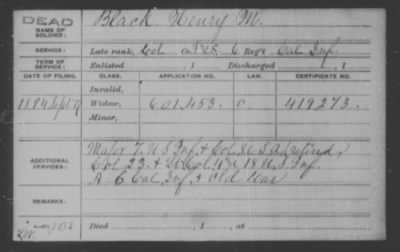 DEAD
NAME OF SOLDIER: Black Henry M.
SERVICE: Late rank, Col 6 Reg't Cal Inf.
TERM OF SERVICE: Enlisted , 1 Discharged , 1
DATE OF FILING. CLASS. APPLICATION NO. LAW. CERTIFICATE NO.
Invalid,
1894 Sept Widow, 601.453 419273.
Minor,
ADDITIONAL SERVICES: Major 7. U S Inf. + Col. U S A retired,
Col 23 + Lt Col 18 U.S. Inf.
6 Cal Inf. + Old War
REMARKS:
Died , 1 , at